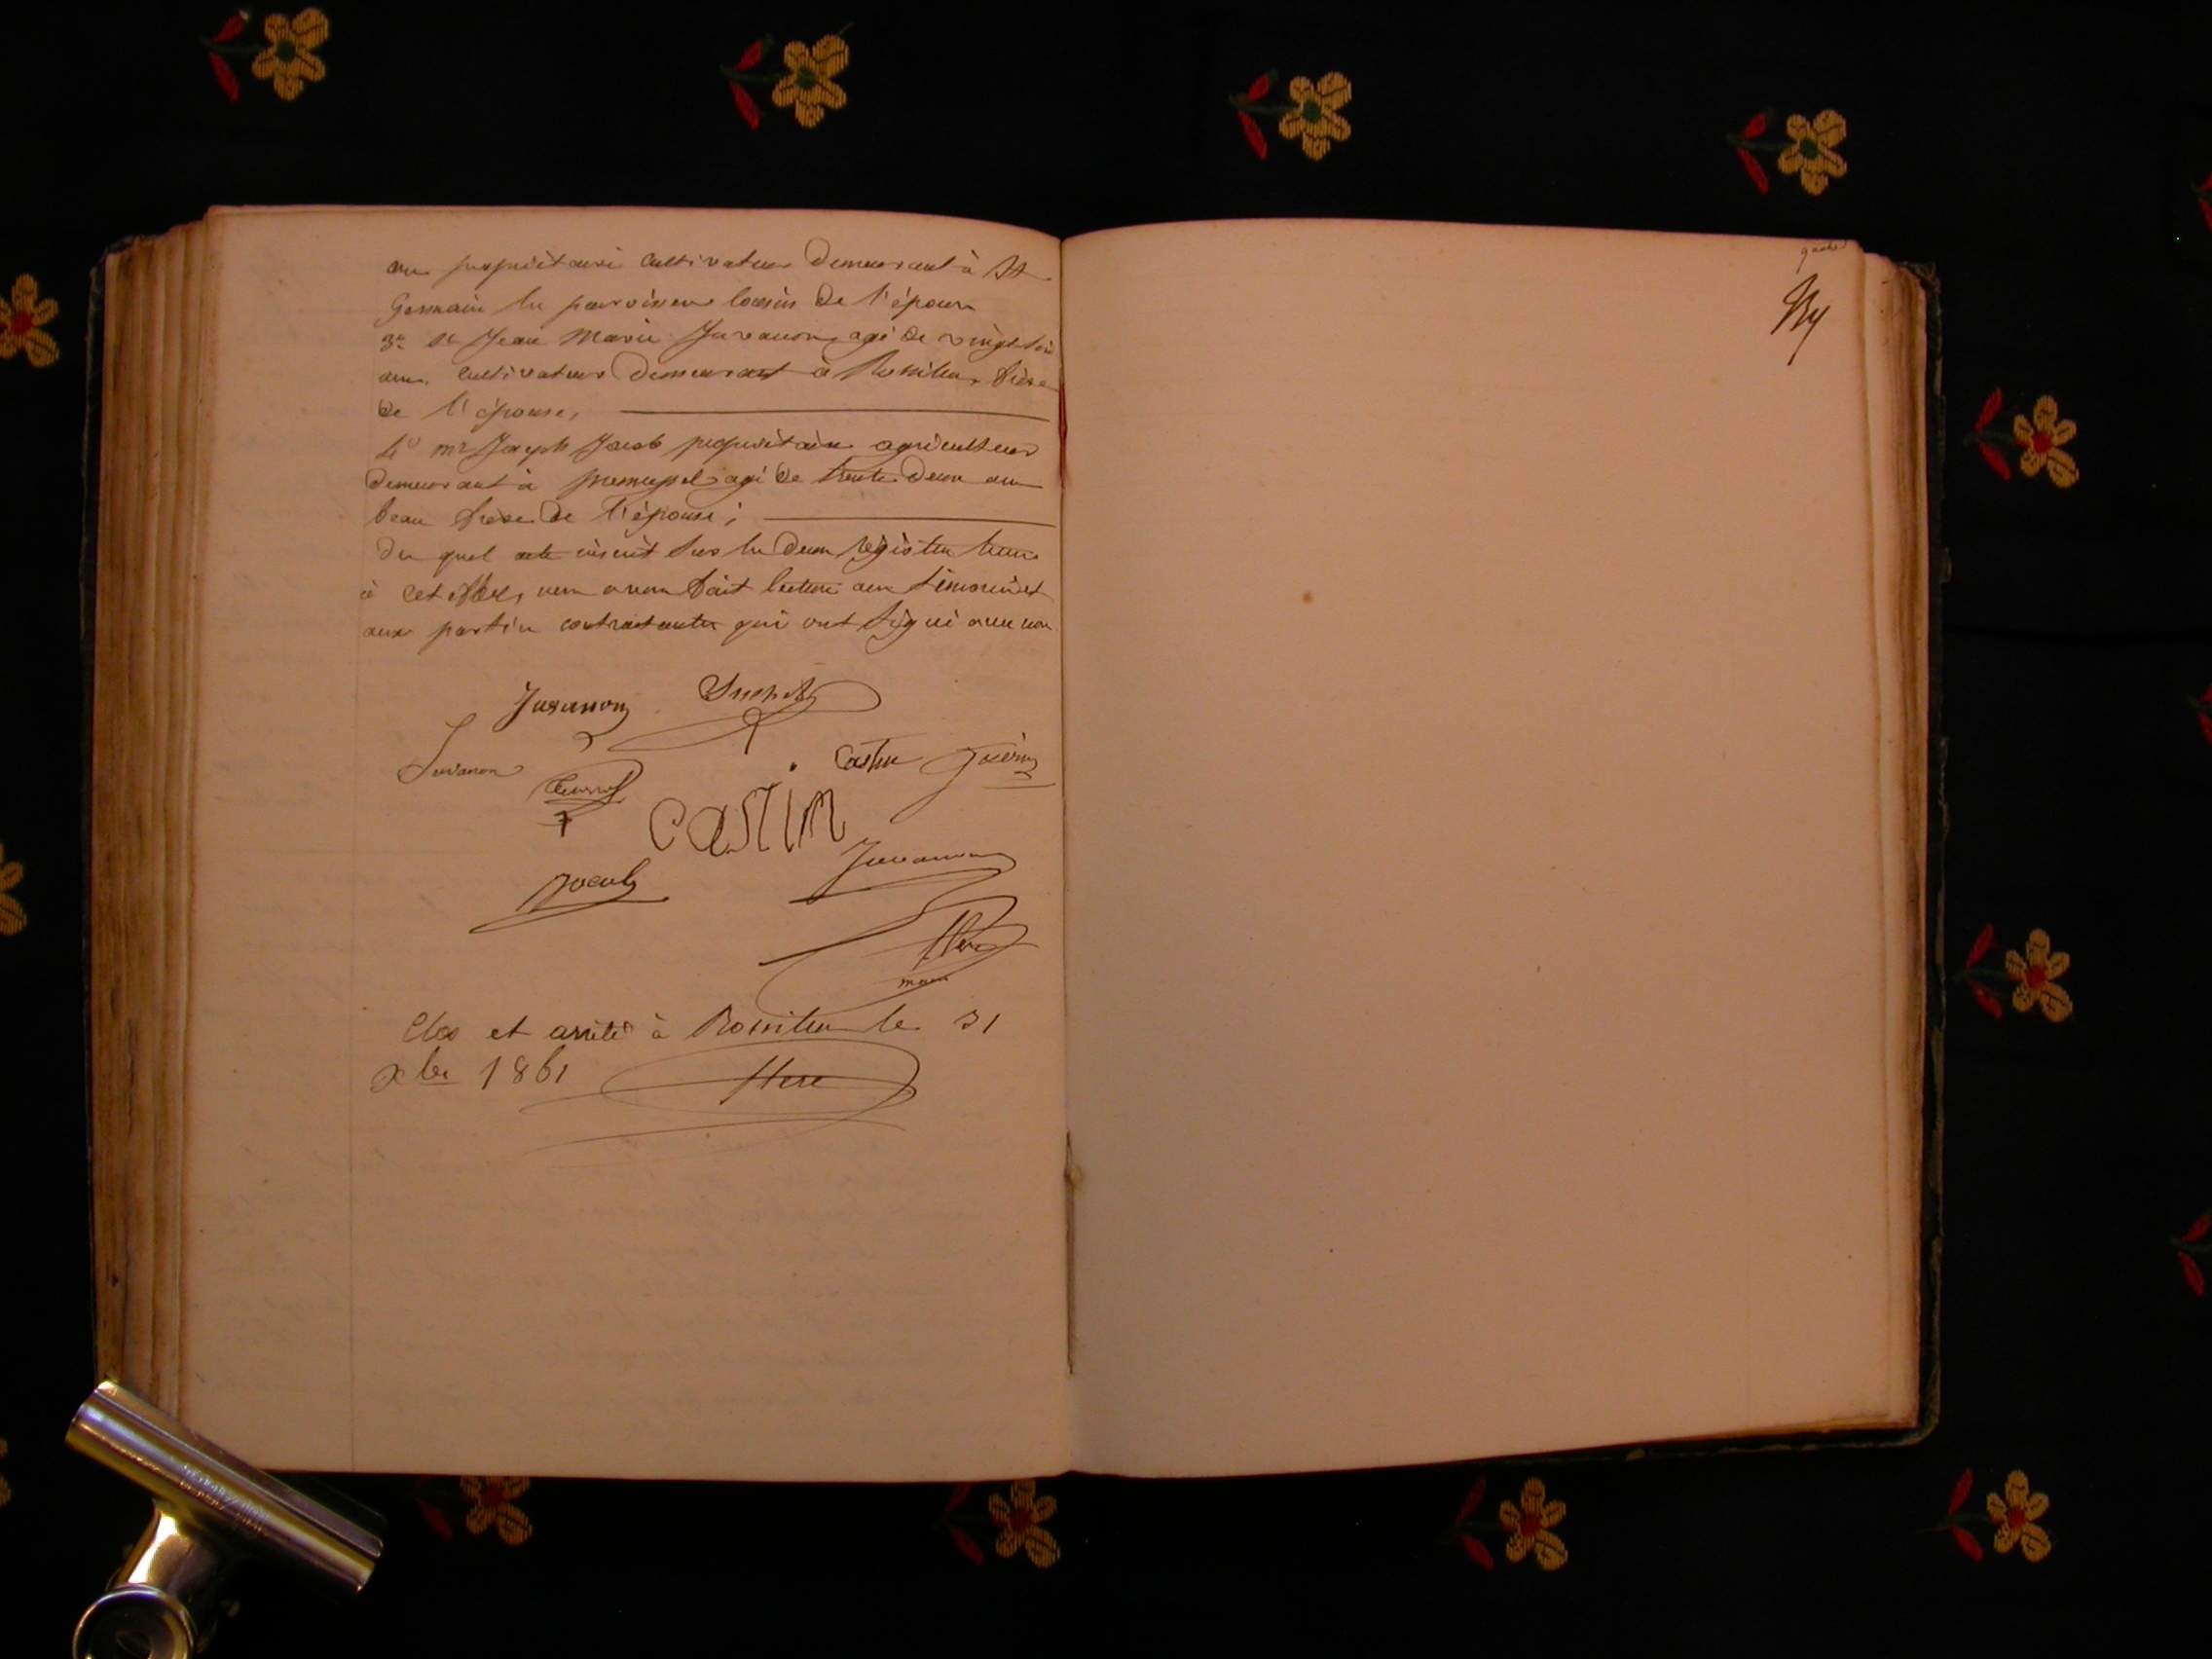 ans propriétaire cultivateur demeurant à St
Germain les paroisses cousin de l'époux
3º Sr Jean Marie Juvanon agé de vingt six
ans cultivateur demeurant à Rossillon frère
de l'épouse,
4º mr Joseph Jacob propriétaire agriculteur
demeurant à premeyzel agé de trente deux ans
beau frère de l'épouse;
du quel acte inscrit sur les deux régistres tenus
à cet effet, nous avons fait lecture aux témoins et
aux parties contractantes qui ont signé avec nous
Juvanon
Juvanon
Castin
CASTIN
Jacob
Juvanon
maire
Clos et arrêté à Rossillon le 31
xbre 1861